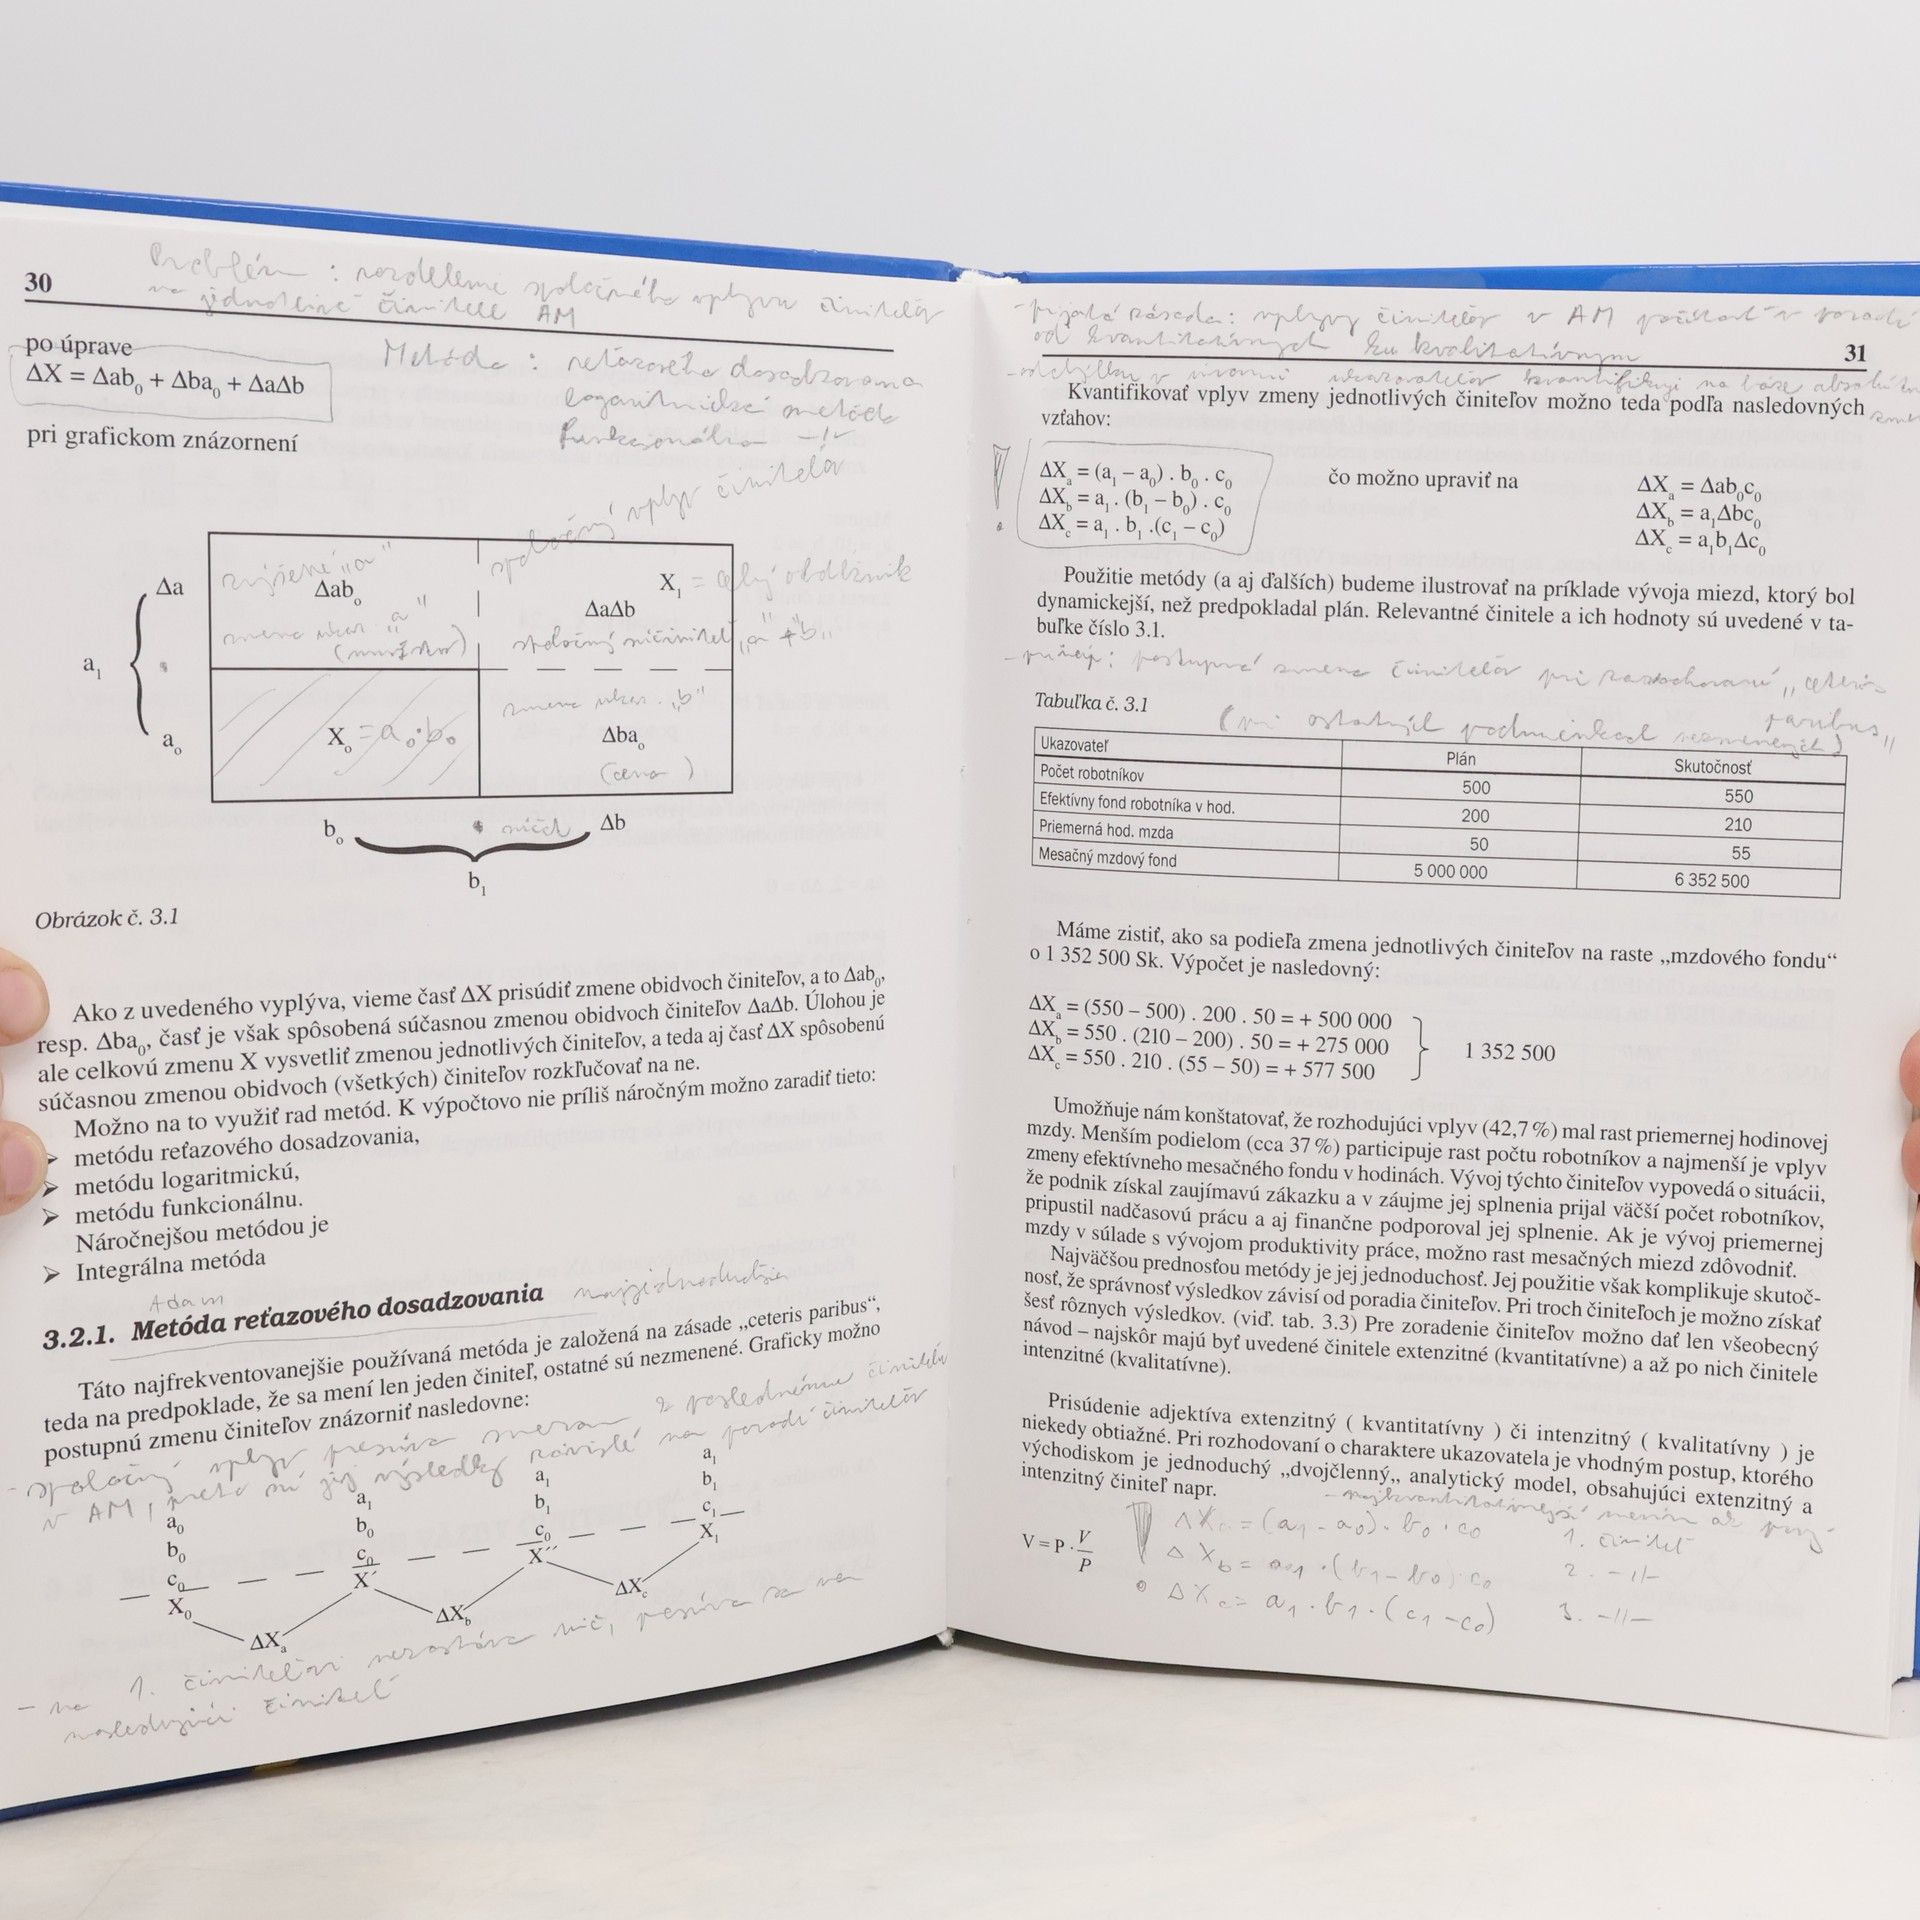 30
Problém : rozdelenie spoločného vplyvu činiteľov
na jednotlivé činitele AM
po úprave
ΔX = Δab₀ + Δba₀ + ΔaΔb
Metóda : reťazového dosadzovania
logaritmická metóda
funkcionálna -//-
pri grafickom znázornení
spoločný vplyv činiteľov
Δa
zvýšené „a"
Δab₀
X₁ = celý obdĺžnik
ΔaΔb
zmena ukaz. „a"
spoločný súčiniteľ „a" + „b"
a₁
a₀
X₀ = a₀·b₀
zmena ukaz. „b"
Δba₀
(cena)
b₀
Δb
b₁
Obrázok č. 3.1
Ako z uvedeného vyplýva, vieme časť ΔX prisúdiť zmene obidvoch činiteľov, a to Δab₀,
resp. Δba₀, časť je však spôsobená súčasnou zmenou obidvoch činiteľov ΔaΔb. Úlohou je
ale celkovú zmenu X vysvetliť zmenou jednotlivých činiteľov, a teda aj časť ΔX spôsobenú
súčasnou zmenou obidvoch (všetkých) činiteľov rozkľučovať na ne.
Možno na to využiť rad metód. K výpočtovo nie príliš náročným možno zaradiť tieto:
➢ metódu reťazového dosadzovania,
➢ metódu logaritmickú,
➢ metódu funkcionálnu.
Náročnejšou metódou je
➢ Integrálna metóda
Adam
3.2.1. Metóda reťazového dosadzovania
najjednoduchšia
Táto najfrekventovanejšie používaná metóda je založená na zásade „ceteris paribus“,
teda na predpoklade, že sa mení len jeden činiteľ, ostatné sú nezmenené. Graficky možno
postupnú zmenu činiteľov znázorniť nasledovne:
- spoločný vplyv presúva smerom k poslednému činiteľu
v AM, preto sú jej výsledky závislé na poradí činiteľov
a₀ a₁ a₁ a₁
b₀ b₀ b₁ b₁
c₀ c₀ c₀ c₁
X₀ X´ X´´ X₁
ΔXₐ ΔX_b ΔX_c
- na 1. činiteľovi nezostáva nič, presúva sa na
nasledujúci činiteľ
- prijatá zásada : vplyvy činiteľov v AM počítať v poradí
od kvantitatívnych ku kvalitatívnym
31
- odchýlku v úrovni ukazovateľov kvantifikuj na báze absolútnych
Kvantifikovať vplyv zmeny jednotlivých činiteľov možno teda podľa nasledovných
vzťahov:
ΔXₐ = (a₁ – a₀) . b₀ . c₀
ΔX_b = a₁ . (b₁ – b₀) . c₀
ΔX_c = a₁ . b₁ .(c₁ – c₀)
čo možno upraviť na
ΔXₐ = Δab₀c₀
ΔX_b = a₁Δbc₀
ΔX_c = a₁b₁Δc₀
Použitie metódy (a aj ďalších) budeme ilustrovať na príklade vývoja miezd, ktorý bol
dynamickejší, než predpokladal plán. Relevantné činitele a ich hodnoty sú uvedené v ta-
buľke číslo 3.1.
- princíp : postupná zmena činiteľov pri zachovaní „ceteris
paribus"
Tabuľka č. 3.1
(pri ostatných podmienkach nezmenených)
Ukazovateľ Plán Skutočnosť
Počet robotníkov 500 550
Efektívny fond robotníka v hod. 200 210
Priemerná hod. mzda 50 55
Mesačný mzdový fond 5 000 000 6 352 500
Máme zistiť, ako sa podieľa zmena jednotlivých činiteľov na raste „mzdového fondu“
o 1 352 500 Sk. Výpočet je nasledovný:
ΔXₐ = (550 – 500) . 200 . 50 = + 500 000
ΔX_b = 550 . (210 – 200) . 50 = + 275 000
ΔX_c = 550 . 210 . (55 – 50) = + 577 500
1 352 500
Umožňuje nám konštatovať, že rozhodujúci vplyv (42,7 %) mal rast priemernej hodinovej
mzdy. Menším podielom (cca 37 %) participuje rast počtu robotníkov a najmenší je vplyv
zmeny efektívneho mesačného fondu v hodinách. Vývoj týchto činiteľov vypovedá o situácii,
že podnik získal zaujímavú zákazku a v záujme jej splnenia prijal väčší počet robotníkov,
pripustil nadčasovú prácu a aj finančne podporoval jej splnenie. Ak je vývoj priemernej
mzdy v súlade s vývojom produktivity práce, možno rast mesačných miezd zdôvodniť.
Najväčšou prednosťou metódy je jej jednoduchosť. Jej použitie však komplikuje skutoč-
nosť, že správnosť výsledkov závisí od poradia činiteľov. Pri troch činiteľoch je možno získať
šesť rôznych výsledkov. (viď. tab. 3.3) Pre zoradenie činiteľov možno dať len všeobecný
návod – najskôr majú byť uvedené činitele extenzitné (kvantitatívne) a až po nich činitele
intenzitné (kvalitatívne).
Prisúdenie adjektíva extenzitný ( kvantitatívny ) či intenzitný ( kvalitatívny ) je
niekedy obtiažné. Pri rozhodovaní o charaktere ukazovatela je vhodným postup, ktorého
východiskom je jednoduchý „dvojčlenný„ analytický model, obsahujúci extenzitný a
intenzitný činiteľ napr.
V = P · V/P
ΔXₐ = (a₁ - a₀) · b₀ · c₀ 1. činiteľ
ΔX_b = a₁ · (b₁ - b₀) · c₀ 2. -//-
ΔX_c = a₁ · b₁ · (c₁ - c₀) 3. -//-